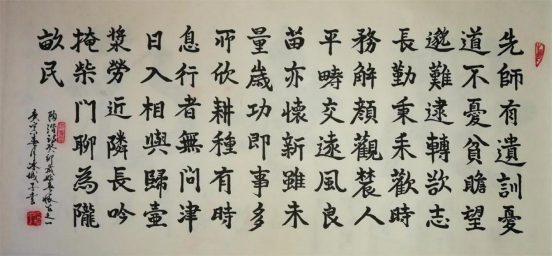 先師有遺訓憂
道不憂貧瞻望
邈難逮轉欲志
長勤秉耒歡時
務解顏觀農人
平疇交遠風良
苗亦懷新雖未
量歲功即事多
所欣耕種有時
息行者無問津
日入相與歸壺
漿勞近隣長吟
掩柴門聊為隴
畝民
陶潛詩癸卯歲始春懷古之一
春月冰城書